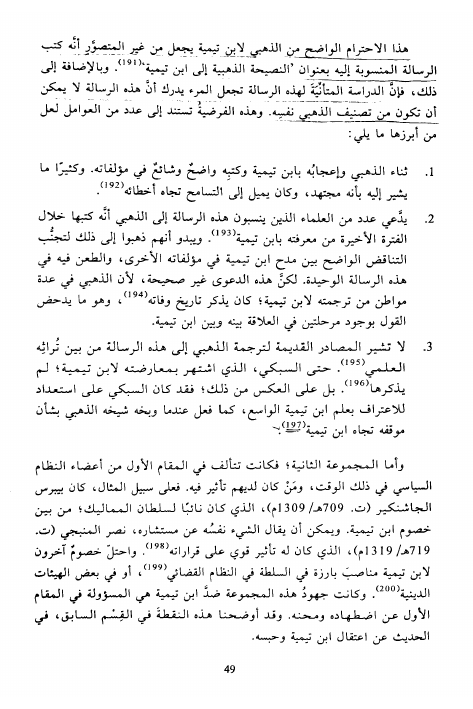 هذا الاحترام الواضح من الذهبي لابن تيمية يجعل من غير المتصوَّر أنَّه كتب
الرسالة المنسوبة إليه بعنوان "النصيحة الذهبية إلى ابن تيمية"(191). وبالإضافة إلى
ذلك، فإنَّ الدراسة المتأنِّيَّة لهذه الرسالة تجعل المرء يدرك أنَّ هذه الرسالة لا يمكن
أن تكون من تصنيف الذهبي نفسِه. وهذه الفرضيةُ تستند إلى عدد من العوامل لعل
من أبرزها ما يلي:
1. ثناء الذهبي وإعجابُه بابن تيمية وكتبِه واضحٌ وشائعٌ في مؤلفاته. وكثيرًا ما
يشير إليه بأنه مجتهد، وكان يميل إلى التسامح تجاه أخطائه(192).
2. يدَّعي عدد من العلماء الذين ينسبون هذه الرسالة إلى الذهبي أنَّه كتبها خلال
الفترة الأخيرة من معرفته بابن تيمية(193). ويبدو أنهم ذهبوا إلى ذلك لتجنُّب
التناقض الواضح بين مدح ابن تيمية في مؤلفاته الأخرى، والطعن فيه في
هذه الرسالة الوحيدة. لكنَّ هذه الدعوى غير صحيحة، لأن الذهبي في عدة
مواطن من ترجمته لابن تيمية؛ كان يذكر تاريخ وفاته(194)، وهو ما يدحض
القول بوجود مرحلتين في العلاقة بينه وبين ابن تيمية.
3. لا تشير المصادر القديمة لترجمة الذهبي إلى هذه الرسالة من بين تُراثِه
العلمي(195). حتى السبكي، الذي اشتهر بمعارضته لابن تيمية؛ لم
يذكرها(196). بل على العكس من ذلك؛ فقد كان السبكي على استعداد
للاعتراف بعلم ابن تيمية الواسع، كما فعل عندما وبخه شيخه الذهبي بشأن
موقفه تجاه ابن تيمية(197).
وأما المجموعة الثانية؛ فكانت تتألف في المقام الأول من أعضاء النظام
السياسي في ذلك الوقت، ومَنْ كان لديهم تأثير فيه. فعلى سبيل المثال، كان بيبرس
الجاشنكير (ت. 709هـ/ 1309م)، الذي كان نائبًا لسلطان المماليك؛ من بين
خصوم ابن تيمية. ويمكن أن يقال الشيء نفسُه عن مستشاره، نصر المنبجي (ت.
719هـ/ 1319م)، الذي كان له تأثير قوي على قراراته(198). واحتلَّ خصومٌ آخرون
لابن تيمية مناصبَ بارزة في السلطة في النظام القضائي(199)، أو في بعض الهيئات
الدينية(200). وكانت جهودُ هذه المجموعة ضدَّ ابن تيمية هي المسؤولة في المقام
الأول عن اضطهاده ومحنه. وقد أوضحنا هذه النقطةَ في القِسْم السابق، في
الحديث عن اعتقال ابن تيمية وحبسه.
49